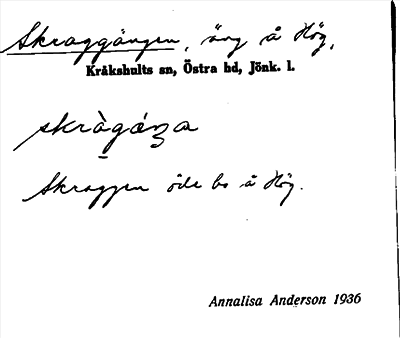 Skraggängen, äng å Hög,
Kråkshults sn, Östra hd, Jönk. l.
skràgáṉa
Skraggen öde bo å Hög.
Annalisa Anderson 1936